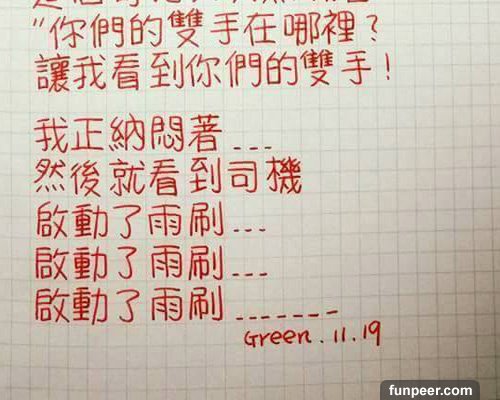 "你們的雙手在哪裡？
讓我看到你們的雙手！
我正納悶著___
然後就看到司機
啟動了雨刷...
啟動了雨刷...
啟動了雨刷.......
Green.11.19
funpeer.com